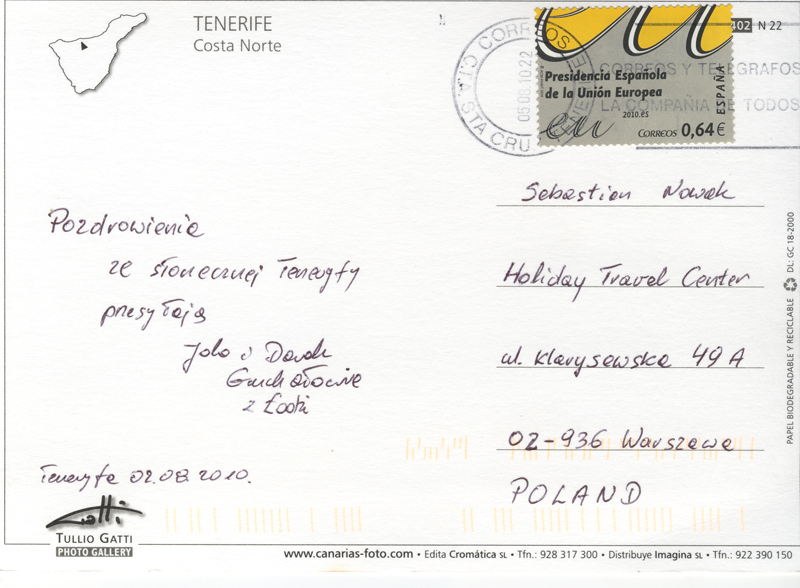 TENERIFE
Costa Norte
402 N 22
CORREOS
05.08.10 22
CTA. STA CRUZ
CORREOS Y TELEGRAFOS
LA COMPAÑIA DE TODOS
Presidencia Española
de la Unión Europea
2010.es
eu
CORREOS 0,64€
ESPAÑA
Pozdrowienia
ze słonecznej Teneryfy
przesyłają
Jola i Darek
z Łodzi
Teneryfa 02.08.2010.
Sebastian Nowak
Holiday Travel Center
ul. Klarysewska 49A
02-936 Warszawa
POLAND
PAPEL BIODEGRADABLE Y RECICLABLE DL: GC 18-2000
Gatti
TULLIO GATTI
PHOTO GALLERY
www.canarias-foto.com • Edita Cromática SL • Tfn.: 928 317 300 • Distribuye Imagina SL • Tfn.: 922 390 150